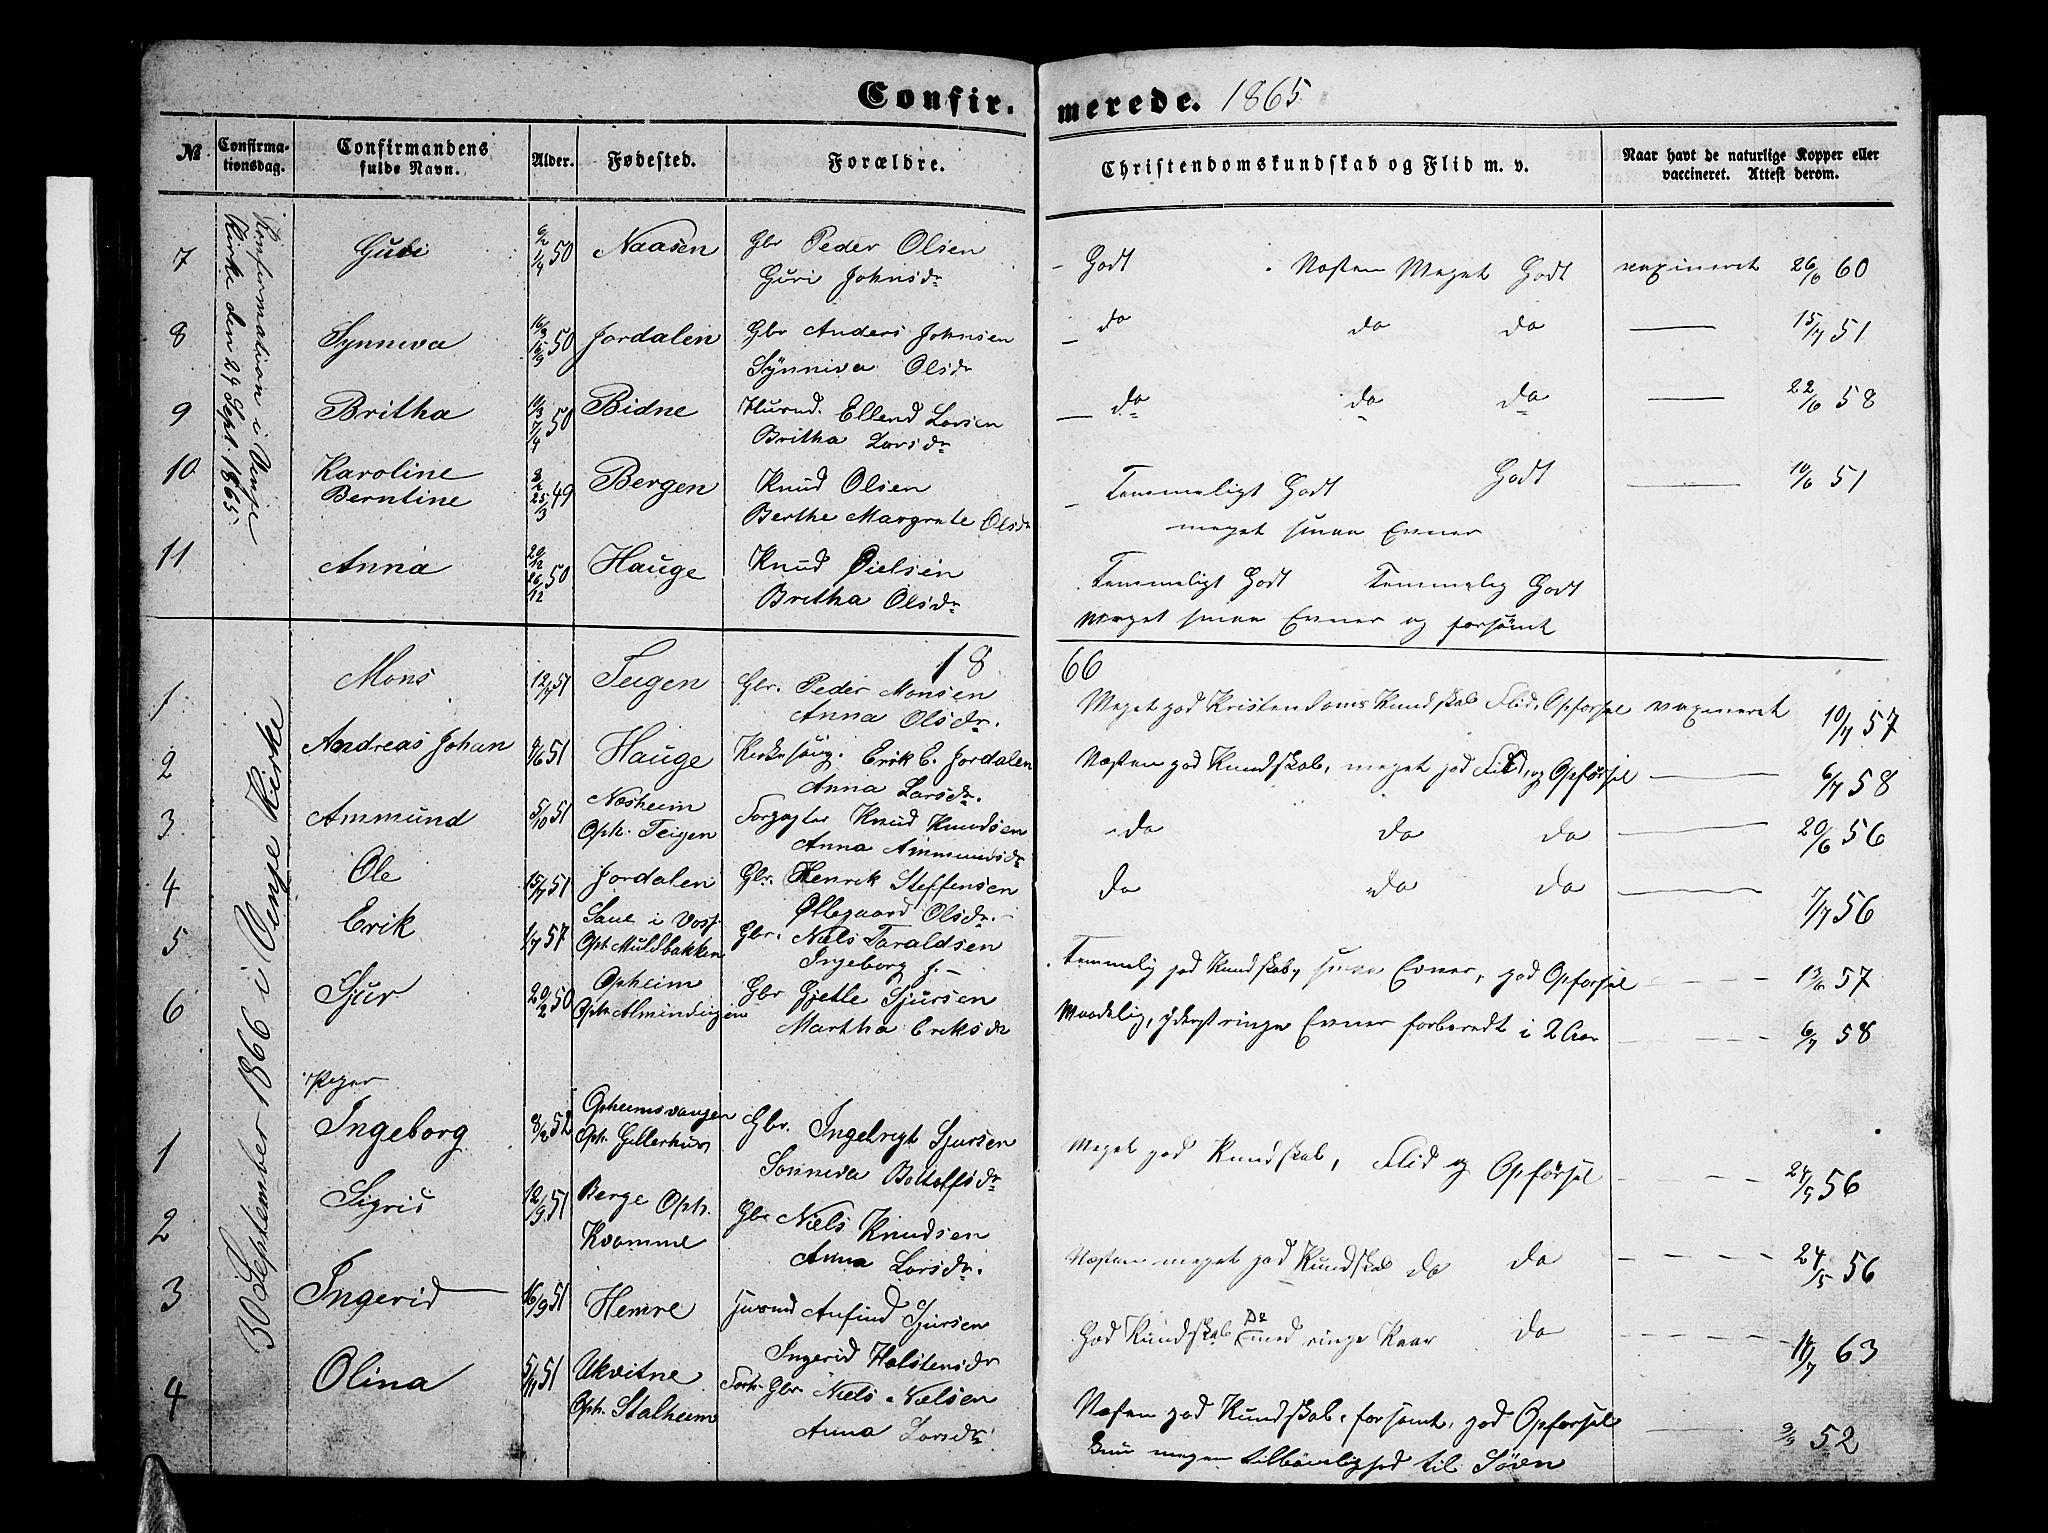 Confir-
merede. 1865
№
Confirma-
tionsdag.
Confirmandens
fulde Navn.
Alder.
Fødested.
Forældre.
Christendomskundskab og Flid m. v.
Naar havt de naturlige Kopper eller
vaccineret. Attest derom.
Konfirmation i Vinje
Kirke den 24 Sept. 1865.
7 Guri 50 Naasen Gbr Peder Olsen
Guri Johnsdr
Godt Næsten Meget Godt vaxineret 26/6 60
8 Synneva 50 Jordalen Gbr Anders Johnsen
Synniva Olsdr
do do do 15/7 51
9 Britha 50 Bidne Husmd. Ellend Larsen
Britha Larsdr
do do do 22/6 58
10 Karoline
Berntine 49 Bergen Knud Olsen
Berthe Margrete Olsdr
Temmeligt Godt Godt 10/6 51
meget smaa Evner
11 Anna 20/12 26/12 50 Hauge Knud Nielsen
Britha Olsdr
Temmeligt Godt Temmelig Godt
Meget smaa Evner og forsømt
18 66
30 September 1866 i Vinje Kirke
1 Mons 51 Teigen Gbr. Peder Monsen
Anna Olsdr.
Meget god Kristendoms Kundskab Flid, Opførsel vaxineret 10/7 57
2 Andreas Johan 51 Hauge Kirkesang. Erik E. Jordalen
Anna Larsdr.
Næsten god Kundskab, meget god Flid, og Opførsel 6/7 58
3 Ammund 5/10 51 Næsheim
Oph. Teigen Knud Knudsen
Anna Ammundsdr
do do do 20/6 56
4 Ole 15/7 51 Jordalen Gbr. Henrik Steffensen
Øllegaard Olsdr.
do do do 7/7 56
5 Erik 1/7 57 Saue i Voss
Oph Muldbakken Gbr. Niels Taraldsen
Ingeborg J. –
Temmelig god Kundskab, smaa Evner, god Opførsel 13/6 57
6 Sjur 20/2 50 Opheim
Oph Almindingen Gbr Gjetle Sjursen
Martha Eriksdr
Maadelig, yderst ringe Evner forberedt i 2 Aar 6/7 58
Piger
1 Ingeborg 8/2 52 Opheimsvangen
Oph. Gellerhus Gbr. Ingebrigt Sjursen
Sønneva Botolfsdr
Meget god Kundskab, Flid og Opførsel 24/5 56
2 Sigrid 12/9 51 Berge Oph.
Kvamme Gbr Niels Knudsen
Anna Larsdr.
Næsten meget god Kundskab do do 24/5 56
3 Ingerid 16/9 51 Hemre Husmd Anfind Sjursen
Ingerid Halstensdr
God Kundskab Do med ringe Kaar do 14/7 63
4 Olina 5/11 51 Ukvitne
Oph. Stalheim Forh. Gbr. Niels Nielsen
Anna Larsdr.
Næsten god Kundskab, forsømt, god Opførsel 9/9 52
megen tilbøielighed til Søvn